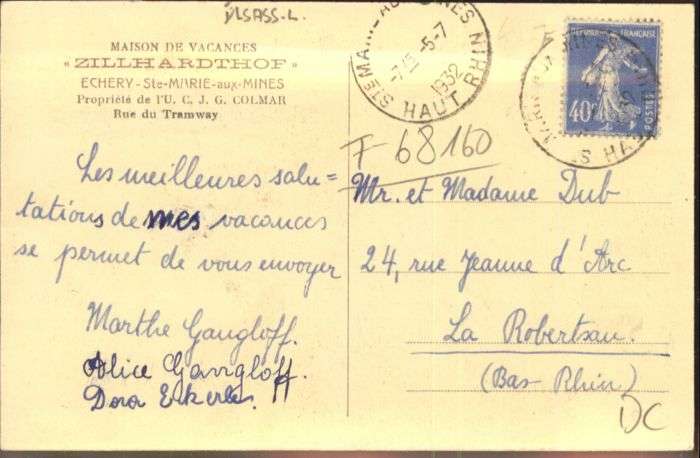 ELSASS-L.
MAISON DE VACANCES
"ZILLHARDTHOF"
ECHERY - Ste-MARIE-aux-MINES
Propriété de l'U. C. J. G. COLMAR
Rue du Tramway
Les meilleures salu=
tations de mes vacances
se permet de vous envoyer
Marthe Gangloff.
Alice Gangloff
Dora
STE MARIE-AUX-MINES
5-7
1932
HAUT RHIN
RÉPUBLIQUE FRANÇAISE
40c
POSTES
F 68160
Mr. et Madame Dub
24, rue Jeanne d'Arc
La Robertsau.
(Bas Rhin)
DC